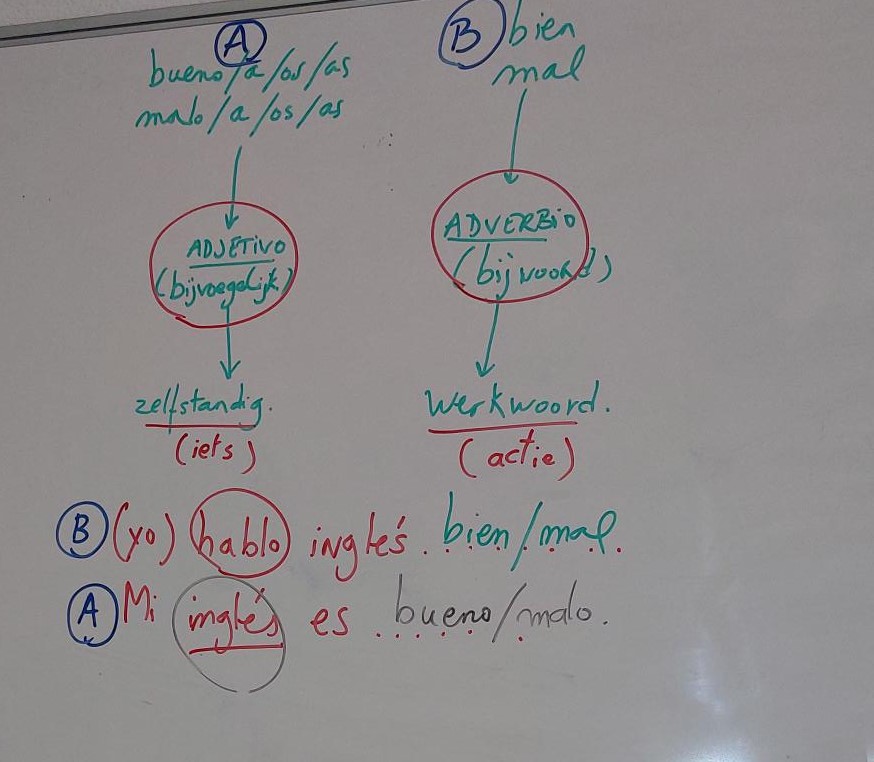 A
bueno/a/os/as
malo/a/os/as
ADJETIVO
(bijvoegelijk)
zelfstandig.
(iets)
B
bien
mal
ADVERBIO
(bijwoord)
werkwoord.
(actie)
B (yo) hablo inglés. bien/mal.
A Mi inglés es bueno/malo.